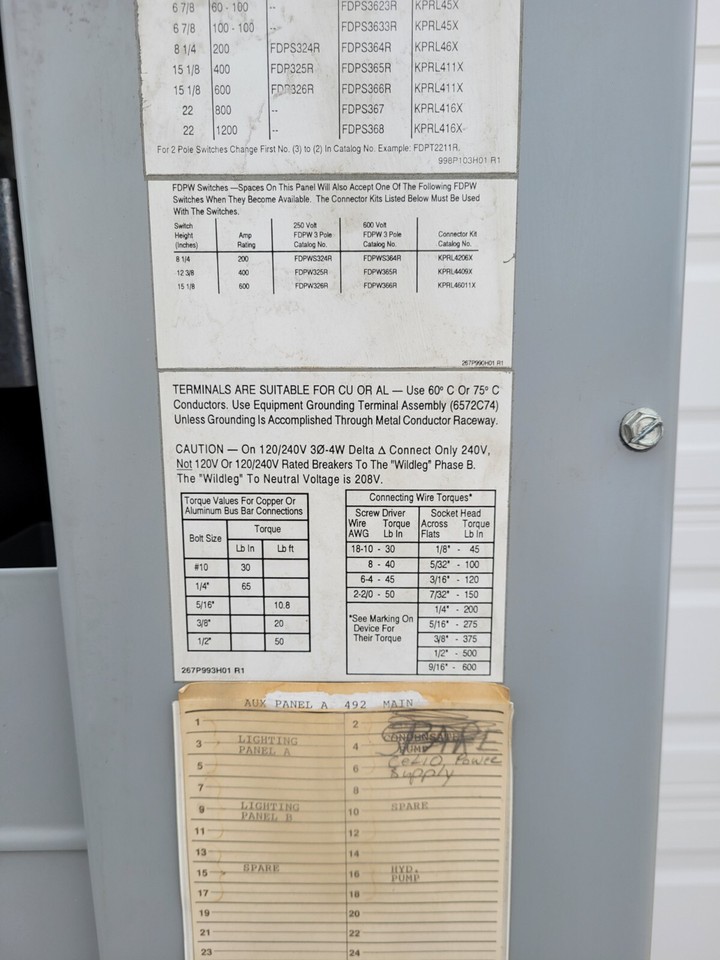 6 7/8 60 - 100 -- FDPS3623R KPRL45X
6 7/8 100 - 100 -- FDPS3633R KPRL45X
8 1/4 200 FDPS324R FDPS364R KPRL46X
15 1/8 400 FDP325R FDPS365R KPRL411X
15 1/8 600 FDP326R FDPS366R KPRL411X
22 800 -- FDPS367 KPRL416X
22 1200 -- FDPS368 KPRL416X
For 2 Pole Switches Change First No. (3) to (2) In Catalog No. Example: FDPT2211R.
998P103H01 R1
FDPW Switches —Spaces On This Panel Will Also Accept One Of The Following FDPW
Switches When They Become Available. The Connector Kits Listed Below Must Be Used
With The Switches.
Switch Height (Inches) Amp Rating 250 Volt FDPW 3 Pole Catalog No. 600 Volt FDPW 3 Pole Catalog No. Connector Kit Catalog No.
8 1/4 200 FDPWS324R FDPWS364R KPRL4206X
12 3/8 400 FDPW325R FDPW365R KPRL4409X
15 1/8 600 FDPW326R FDPW366R KPRL46011X
267P990H01 R1
TERMINALS ARE SUITABLE FOR CU OR AL — Use 60° C Or 75° C
Conductors. Use Equipment Grounding Terminal Assembly (6572C74)
Unless Grounding Is Accomplished Through Metal Conductor Raceway.
CAUTION — On 120/240V 3Ø-4W Delta Δ Connect Only 240V,
Not 120V Or 120/240V Rated Breakers To The "Wildleg" Phase B.
The "Wildleg" To Neutral Voltage is 208V.
Torque Values For Copper Or
Aluminum Bus Bar Connections
Bolt Size Torque
Lb In Lb ft
#10 30
1/4" 65
5/16" 10.8
3/8" 20
1/2" 50
267P993H01 R1
Connecting Wire Torques*
Screw Driver Socket Head
Wire Torque Across Torque
AWG Lb In Flats Lb In
18-10 - 30 1/8" - 45
8 - 40 5/32" - 100
6-4 - 45 3/16" - 120
2-2/0 - 50 7/32" - 150
*See Marking On
Device For
Their Torque
1/4" - 200
5/16" - 275
3/8" - 375
1/2" - 500
9/16" - 600
AUX PANEL A 492 MAIN
1 2
3 LIGHTING PANEL A 4 PUMP SPARE
5 6 Power Supply
7 8
9 LIGHTING PANEL B 10 SPARE
11 12
13 14
15 SPARE 16 HYD. PUMP
17 18
19 20
21 22
23 24